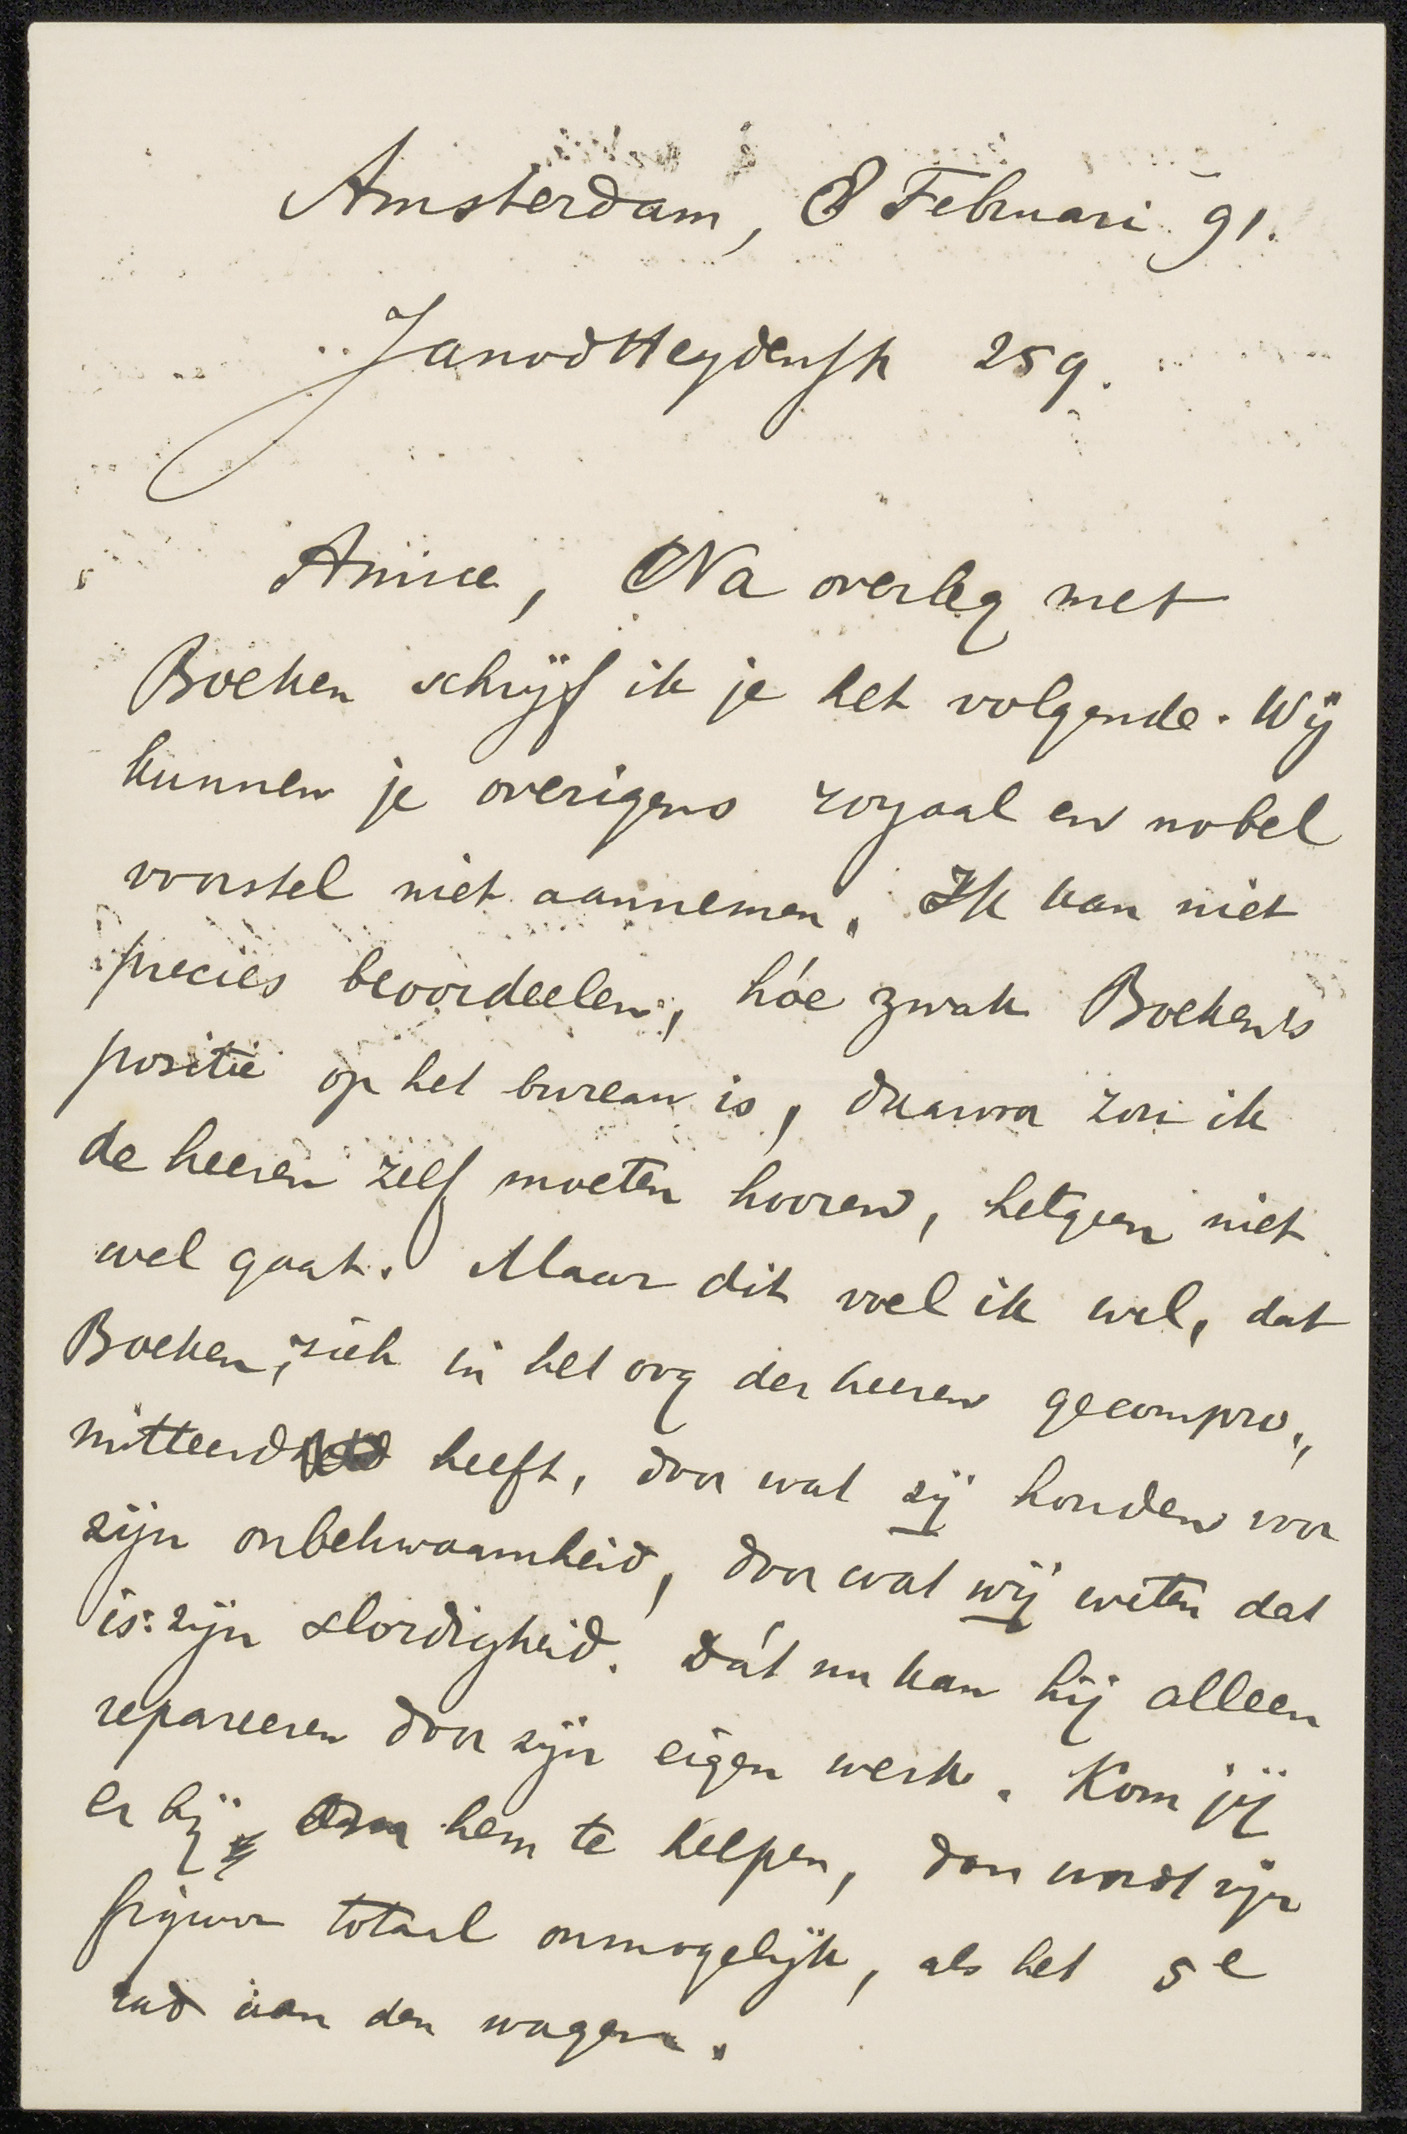 Amsterdam, 8 Februari 91.
JanvdHeydenstr 259.
Amice, Na overleg met
Boeken schrijf ik je het volgende. Wij
kunnen je overigens royaal en nobel
voorstel niet aannemen. Ik kan niet
precies beoordeelen, hóe zwak Boeken's
positie op het bureau is, daarvoor zou ik
de heeren zelf moeten hooren, hetgeen niet
wel gaat. Maar dit voel ik wel, dat
Boeken, zich in het oog der heeren gecompro„
mitteerd heeft, door wat zij houden voor
zijn onbekwaamheid, door wat wij weten dat
is: zijn slordigheid. Dát nu kan hij alleen
repareeren door zijn eigen werk. Kom jij
er bij, om hem te helpen, dan wordt zijn
figuur totaal onmogelijk, als het 5e
rad aan den wagen.